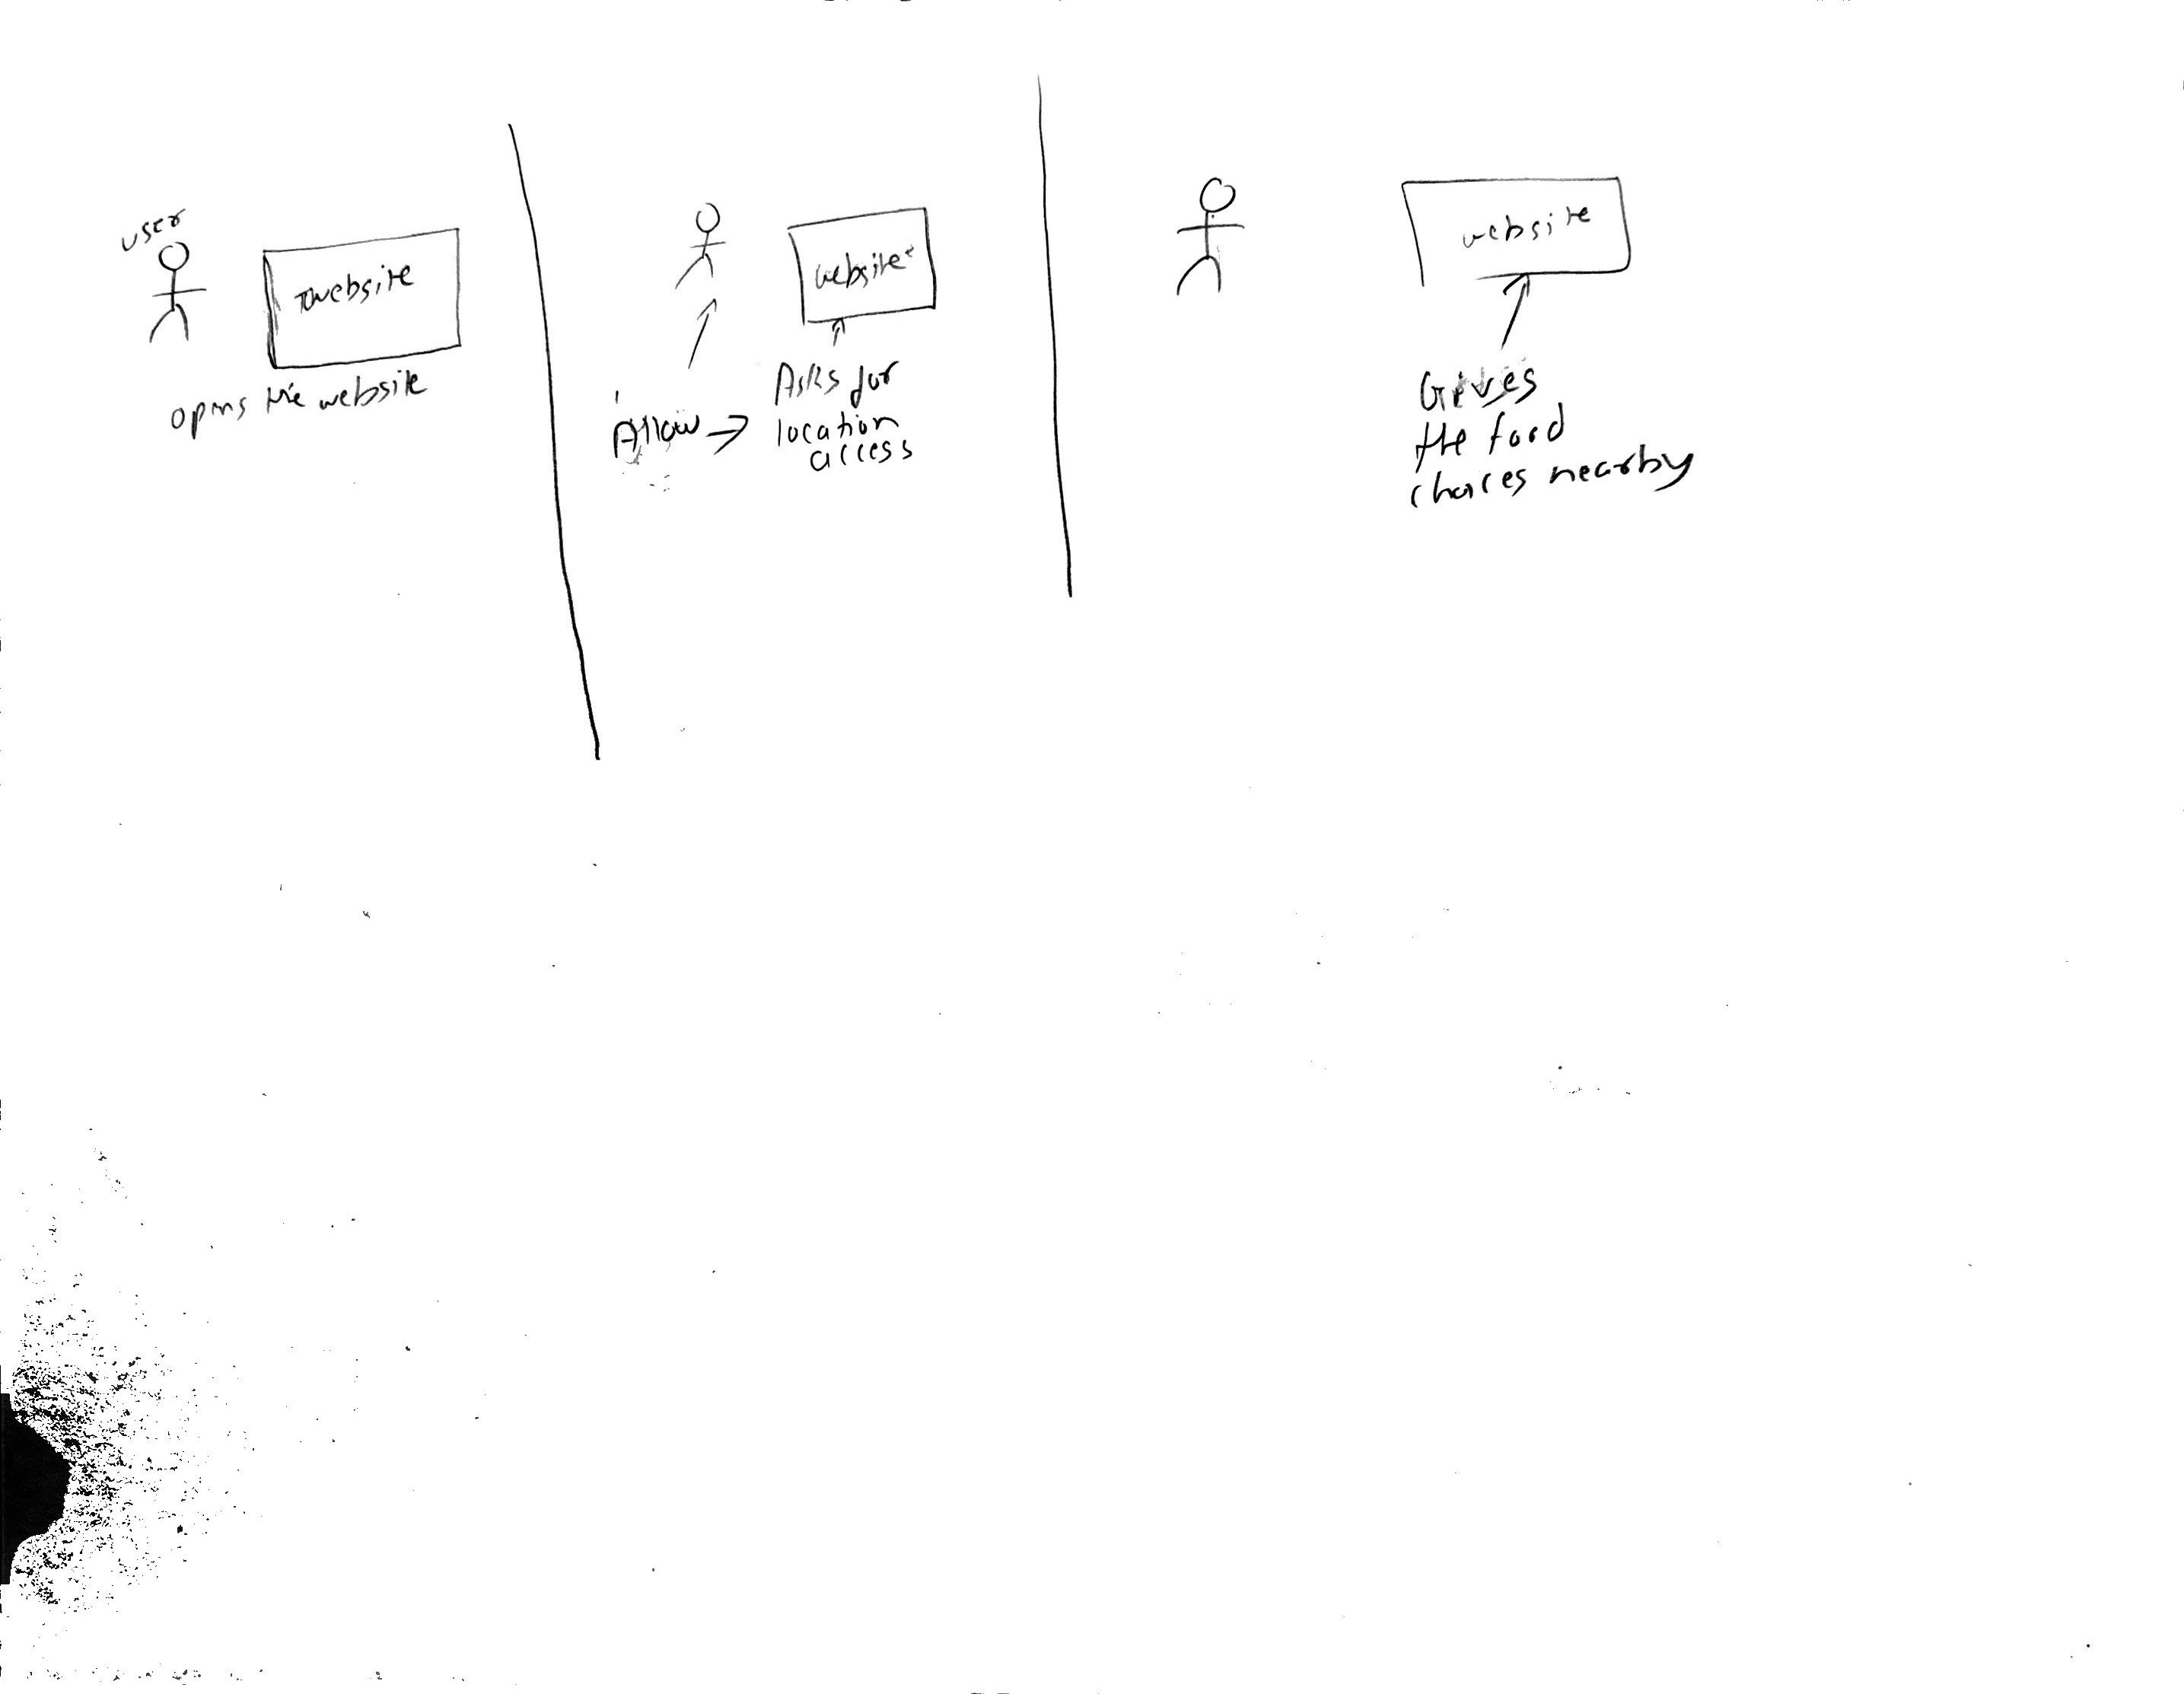 user
website
opens the website
website
Allow →
Asks for
location
access
website
Gives
the food
choices nearby